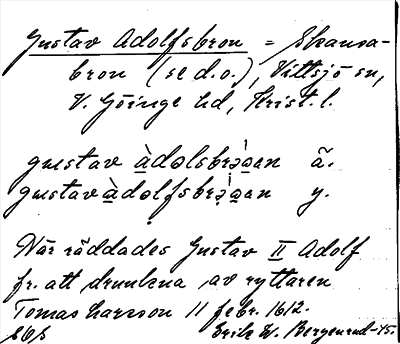 Gustav Adolfsbron = Skansa-
bron (se d.o.), Vittsjö sn,
V. Göinge hd, Krist. l.
gustav àdolsbrǫ̀an ä.
gustav àdolfsbrǫ̀an y.
Här räddades Gustav II Adolf
fr. att drunkna av ryttaren
Tomas Larsson 11 febr. 1612.
Erik W. Bergenrud -45.